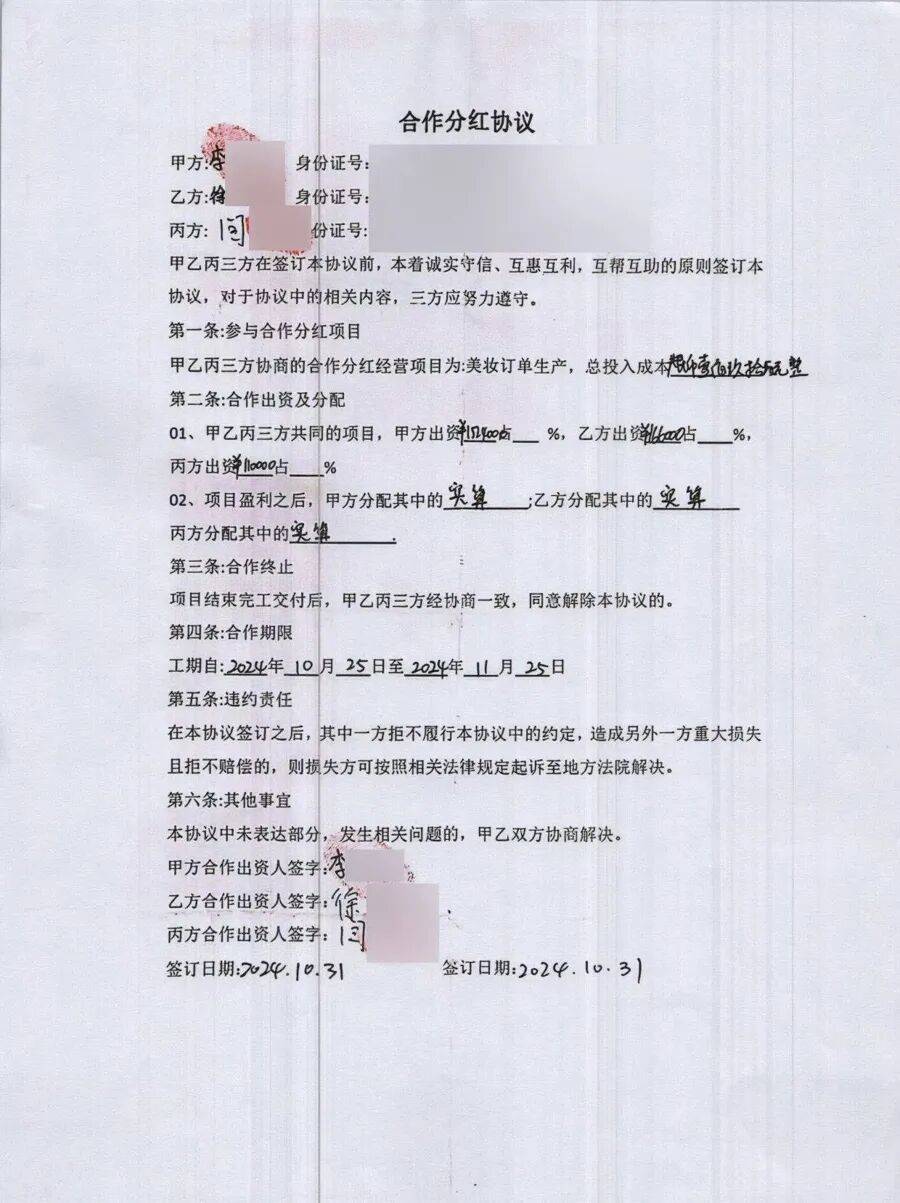 合作分红协议
甲方:李 身份证号:
乙方:徐 身份证号:
丙方: 闫 份证号:
甲乙丙三方在签订本协议前，本着诚实守信、互惠互利，互帮互助的原则签订本
协议，对于协议中的相关内容，三方应努力遵守。
第一条:参与合作分红项目
甲乙丙三方协商的合作分红经营项目为:美妆订单生产，总投入成本
第二条:合作出资及分配
01、甲乙丙三方共同的项目，甲方出资 占 %，乙方出资¥166000占 %，
丙方出资¥110000占 %
02、项目盈利之后，甲方分配其中的实算;乙方分配其中的实算
丙方分配其中的实算.
第三条:合作终止
项目结束完工交付后，甲乙丙三方经协商一致，同意解除本协议的。
第四条:合作期限
工期自:2024年10月25日至2024年11月25日
第五条:违约责任
在本协议签订之后，其中一方拒不履行本协议中的约定，造成另外一方重大损失
且拒不赔偿的，则损失方可按照相关法律规定起诉至地方法院解决。
第六条:其他事宜
本协议中未表达部分，发生相关问题的，甲乙双方协商解决。
甲方合作出资人签字:李
乙方合作出资人签字:徐
丙方合作出资人签字:闫
签订日期:2024.10.31 签订日期:2024.10.31